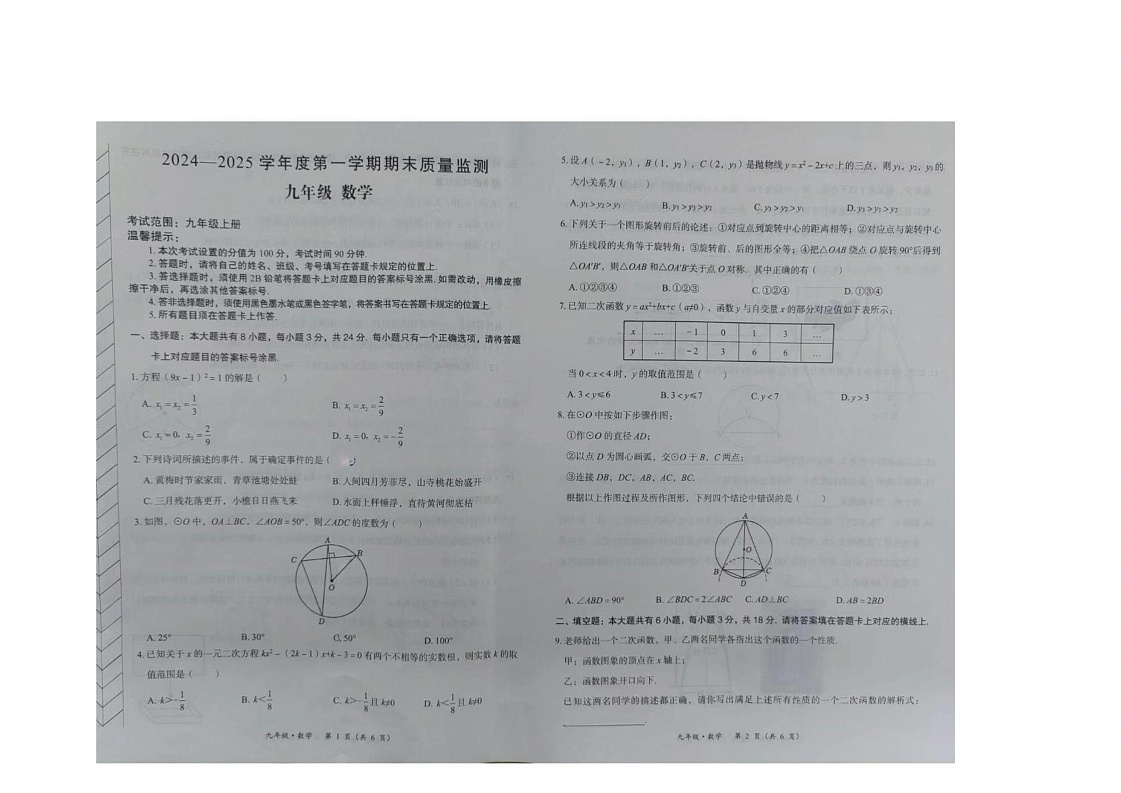 2024—2025 学年度第一学期期末质量监测
九年级 数学
考试范围：九年级上册
温馨提示：
1. 本次考试设置的分值为 100 分，考试时间 90 分钟.
2. 答题时，请将自己的姓名、班级、考号填写在答题卡规定的位置上.
3. 答选择题时，须使用 2B 铅笔将答题卡上对应题目的答案标号涂黑. 如需改动，用橡皮擦
擦干净后，再选涂其他答案标号.
4. 答非选择题时，须使用黑色墨水笔或黑色签字笔，将答案书写在答题卡规定的位置上.
5. 所有题目须在答题卡上作答.
一、选择题：本大题共有 8 小题，每小题 3 分，共 24 分. 每小题只有一个正确选项，请将答题
卡上对应题目的答案标号涂黑.
1. 方程 (9x－1)²＝1 的解是（　　）
A. x₁＝x₂＝1/3　B. x₁＝x₂＝2/9
C. x₁＝0，x₂＝2/9　D. x₁＝0，x₂＝－2/9
2. 下列诗词所描述的事件，属于确定事件的是（　　）
A. 黄梅时节家家雨，青草池塘处处蛙　B. 人间四月芳菲尽，山寺桃花始盛开
C. 三月残花落更开，小檐日日燕飞来　D. 水面上秤锤浮，直待黄河彻底枯
3. 如图，⊙O 中，OA⊥BC，∠AOB＝50°，则∠ADC 的度数为（　　）
A
B
C
O
D
A. 25°　B. 30°　C. 50°　D. 100°
4. 已知关于 x 的一元二次方程 kx²－(2k－1)x+k－3＝0 有两个不相等的实数根，则实数 k 的取
值范围是（　　）
A. k>－1/8　B. k<1/8　C. k>－1/8且 k≠0　D. k<1/8且 k≠0
九年级·数学　第 1 页（共 6 页）
5. 设 A（－2，y₁），B（1，y₂），C（2，y₃）是抛物线 y＝x²－2x+c 上的三点，则 y₁，y₂，y₃的
大小关系为（　　）
A. y₁>y₂>y₃　B. y₁>y₃>y₂　C. y₃>y₂>y₁　D. y₃>y₁>y₂
6. 下列关于一个图形旋转前后的论述：①对应点到旋转中心的距离相等；②对应点与旋转中心
所连线段的夹角等于旋转角；③旋转前、后的图形全等；④把△OAB 绕点 O 旋转 90°后得到
△OA'B'，则△OAB 和△OA'B'关于点 O 对称. 其中正确的有（　　）
A. ①②③④　B. ①②③　C. ①②④　D. ①③④
7. 已知二次函数 y＝ax²+bx+c（a≠0），函数 y 与自变量 x 的部分对应值如下表所示：
x … －1 0 1 3 …
y … －2 3 6 6 …
当 0<x<4 时，y 的取值范围是（　　）
A. 3<y≤6　B. 3<y≤7　C. y<7　D. y>3
8. 在⊙O 中按如下步骤作图：
①作⊙O 的直径 AD；
②以点 D 为圆心画弧，交⊙O 于 B，C 两点；
③连接 DB，DC，AB，AC，BC.
根据以上作图过程及所作图形，下列四个结论中错误的是（　　）
A
O
B
C
D
A. ∠ABD＝90°　B. ∠BDC＝2∠ABC　C. AD⊥BC　D. AB＝2BD
二、填空题：本大题共有 6 小题，每小题 3 分，共 18 分. 请将答案填在答题卡上对应的横线上.
9. 老师给出一个二次函数，甲、乙两名同学各指出这个函数的一个性质.
甲：函数图象的顶点在 x 轴上；
乙：函数图象开口向下.
已知这两名同学的描述都正确，请你写出满足上述所有性质的一个二次函数的解析式：
.
九年级·数学　第 2 页（共 6 页）